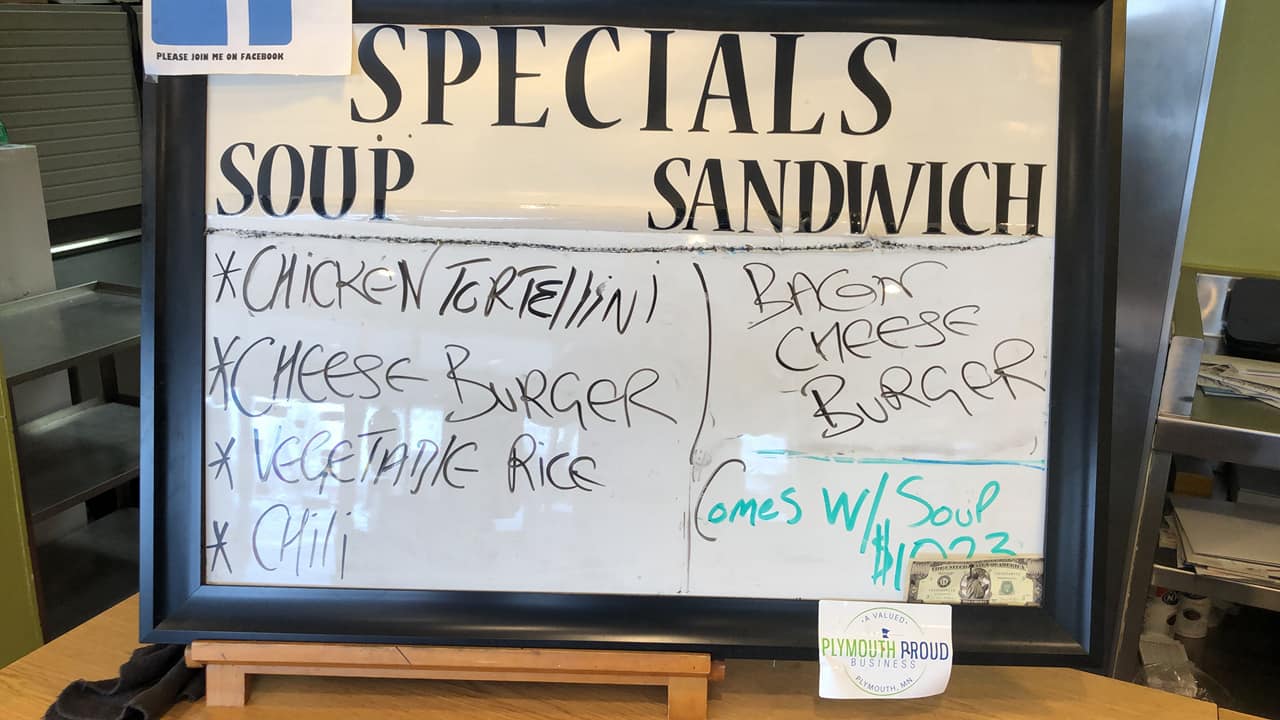 PLEASE JOIN ME ON FACEBOOK
SPECIALS
SOUP
SANDWICH
*CHICKEN TORTEllINI
*CHEESE BURGER
* VEGETABLE RICE
* CHili
BACON
CHEESE
BURGER
Comes W/ Soup
A VALUED
PLYMOUTH PROUD
BUSINESS
PLYMOUTH, MN